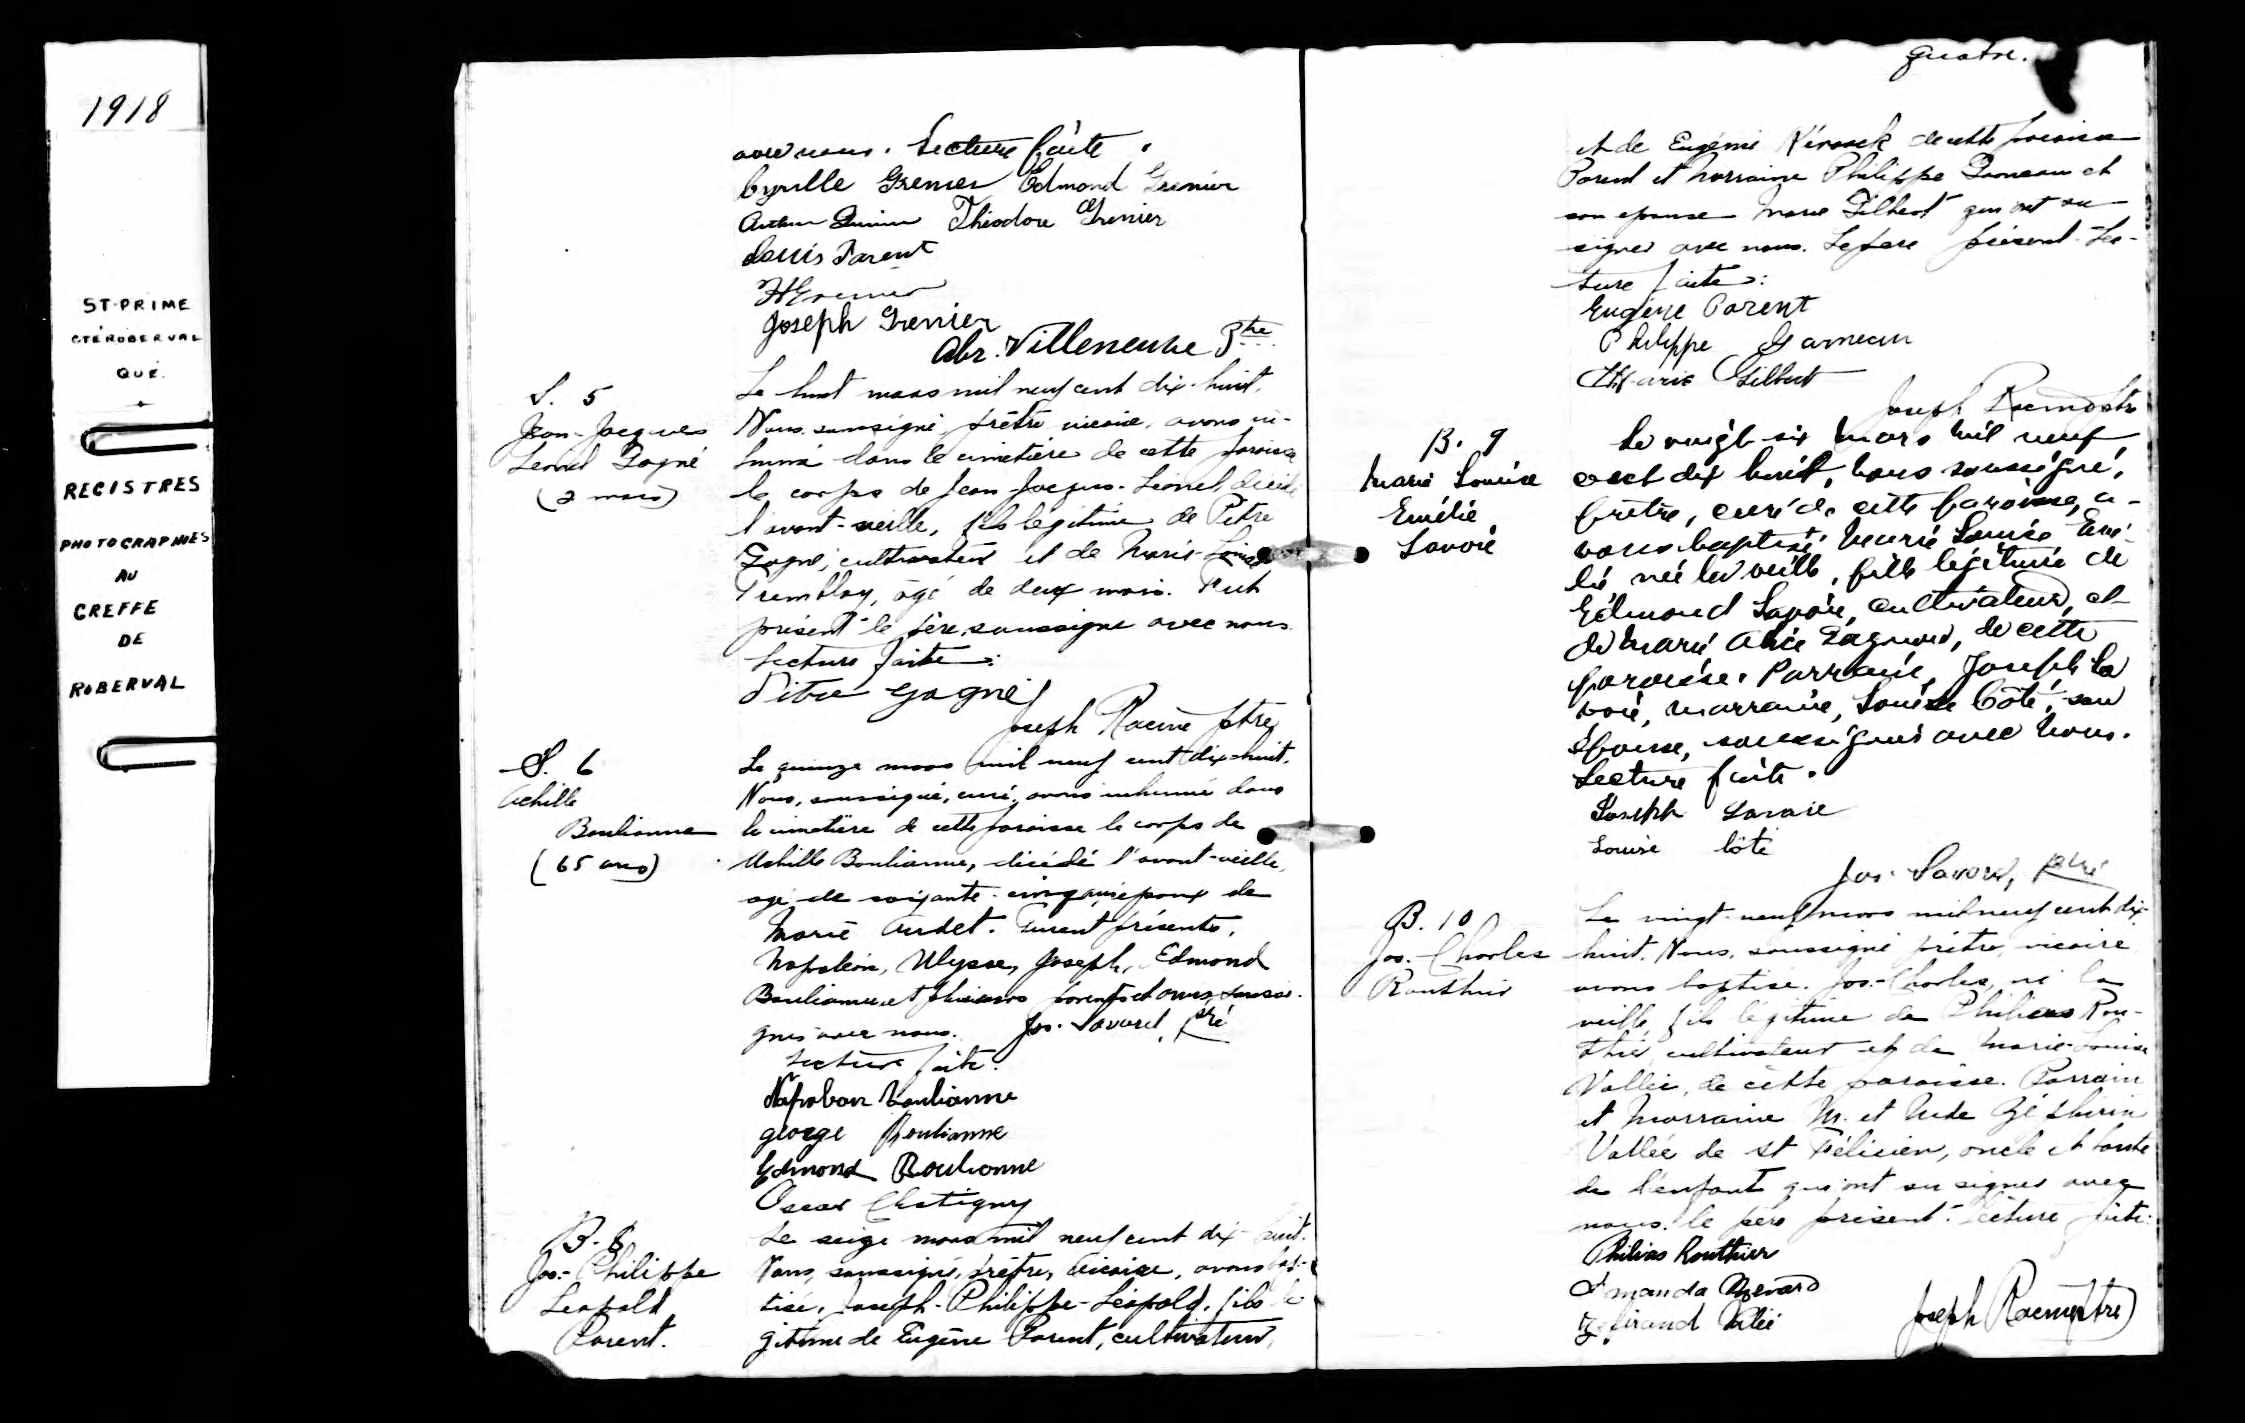 1918
ST-PRIME
CTÉ ROBERVAL
QUÉ.
REGISTRES
PHOTOGRAPHIES
AU
GREFFE
DE
ROBERVAL
avec nous. Lecture faite.
Cyrille Grenier Edmond Grenier
Théodore Grenier
Louis Parent
Joseph Grenier
Abr. Villeneuve Ptre
S. 5
Jean-Jacques
Lionel Gagné
(2 mois)
Le huit mars mil neuf cent dix-huit.
Nous soussigné, prêtre vicaire, avons in-
humé dans le cimetière de cette paroisse
le corps de Jean-Jacques-Lionel, décédé
l'avant-veille, fils légitime de Pitre
Gagné, cultivateur et de Marie-Louise
Tremblay, âgé de deux mois. Fut
présent le père, soussigné avec nous.
Lecture faite:
Pitre Gagné
Joseph Racine ptre
S. 6
Achille
Boulianne
(65 ans)
Le quinze mars mil neuf cent dix-huit.
Nous, soussigné, curé, avons inhumé dans
le cimetière de cette paroisse le corps de
Achille Boulianne, décédé l'avant-veille,
agé de soixante-cinq ans époux de
Marie Audet. Furent présents,
Napoléon, Ulysse, Joseph, Edmond
Boulianne et plusieurs parents et amis, soussi-
gnés avec nous. Jos. Lavard, ptre
Lecture faite.
Napoléon Boulianne
George Boulianne
Edmond Boulianne
Oscar Chatigny
B. 8
Jos.-Philippe
Léopold
Parent.
Le seize mars mil neuf cent dix-huit.
Nous, soussigné, prêtre, vicaire, avons bap-
tisé, Joseph-Philippe-Léopold, fils lé
gitime de Eugène Parent, cultivateur,
quatre.
et de Eugénie de cette paroisse
Parent et marraine Philippe Garneau et
son épouse Marie Gilbert qui ont su
signer avec nous. Le père présent. Lec-
ture faite:
Eugène Parent
Philippe Garneau
Marie Gilbert
Joseph Racine ptre
B. 9
Marie Louise
Emélie
Savoie
Le vingt-six mars mil neuf
cent dix huit, nous soussigné,
prêtre, curé de cette paroisse, a-
vons baptisé Marie Louise Emé-
lie née la veille, fille légitime de
Edmond Savoie, cultivateur, et
de Marie Alice Gagnon, de cette
paroisse. Parrain, Joseph Sa
voie, marraine, Louise Côté, son
épouse, soussignés avec nous.
Lecture faite.
Joseph Savoie
Louise Côté
Jos. Lavard, ptre
B. 10
Jos.-Charles
Routhier
Le vingt-neuf mars mil neuf cent dix-
huit. Nous, soussigné prêtre, vicaire
avons baptisé. Jos.-Charles, né la
veille, fils légitime de Philias Rou-
thier cultivateur et de Marie-Louise
Vallée, de cette paroisse. Parrain
et marraine M. et Mde Zéphirin
Vallée de St Félicien, oncle et tante
de l'enfant qui ont su signer avec
nous. le père présent. Lecture faite:
Philias Routhier
Amanda
Joseph Racine ptre